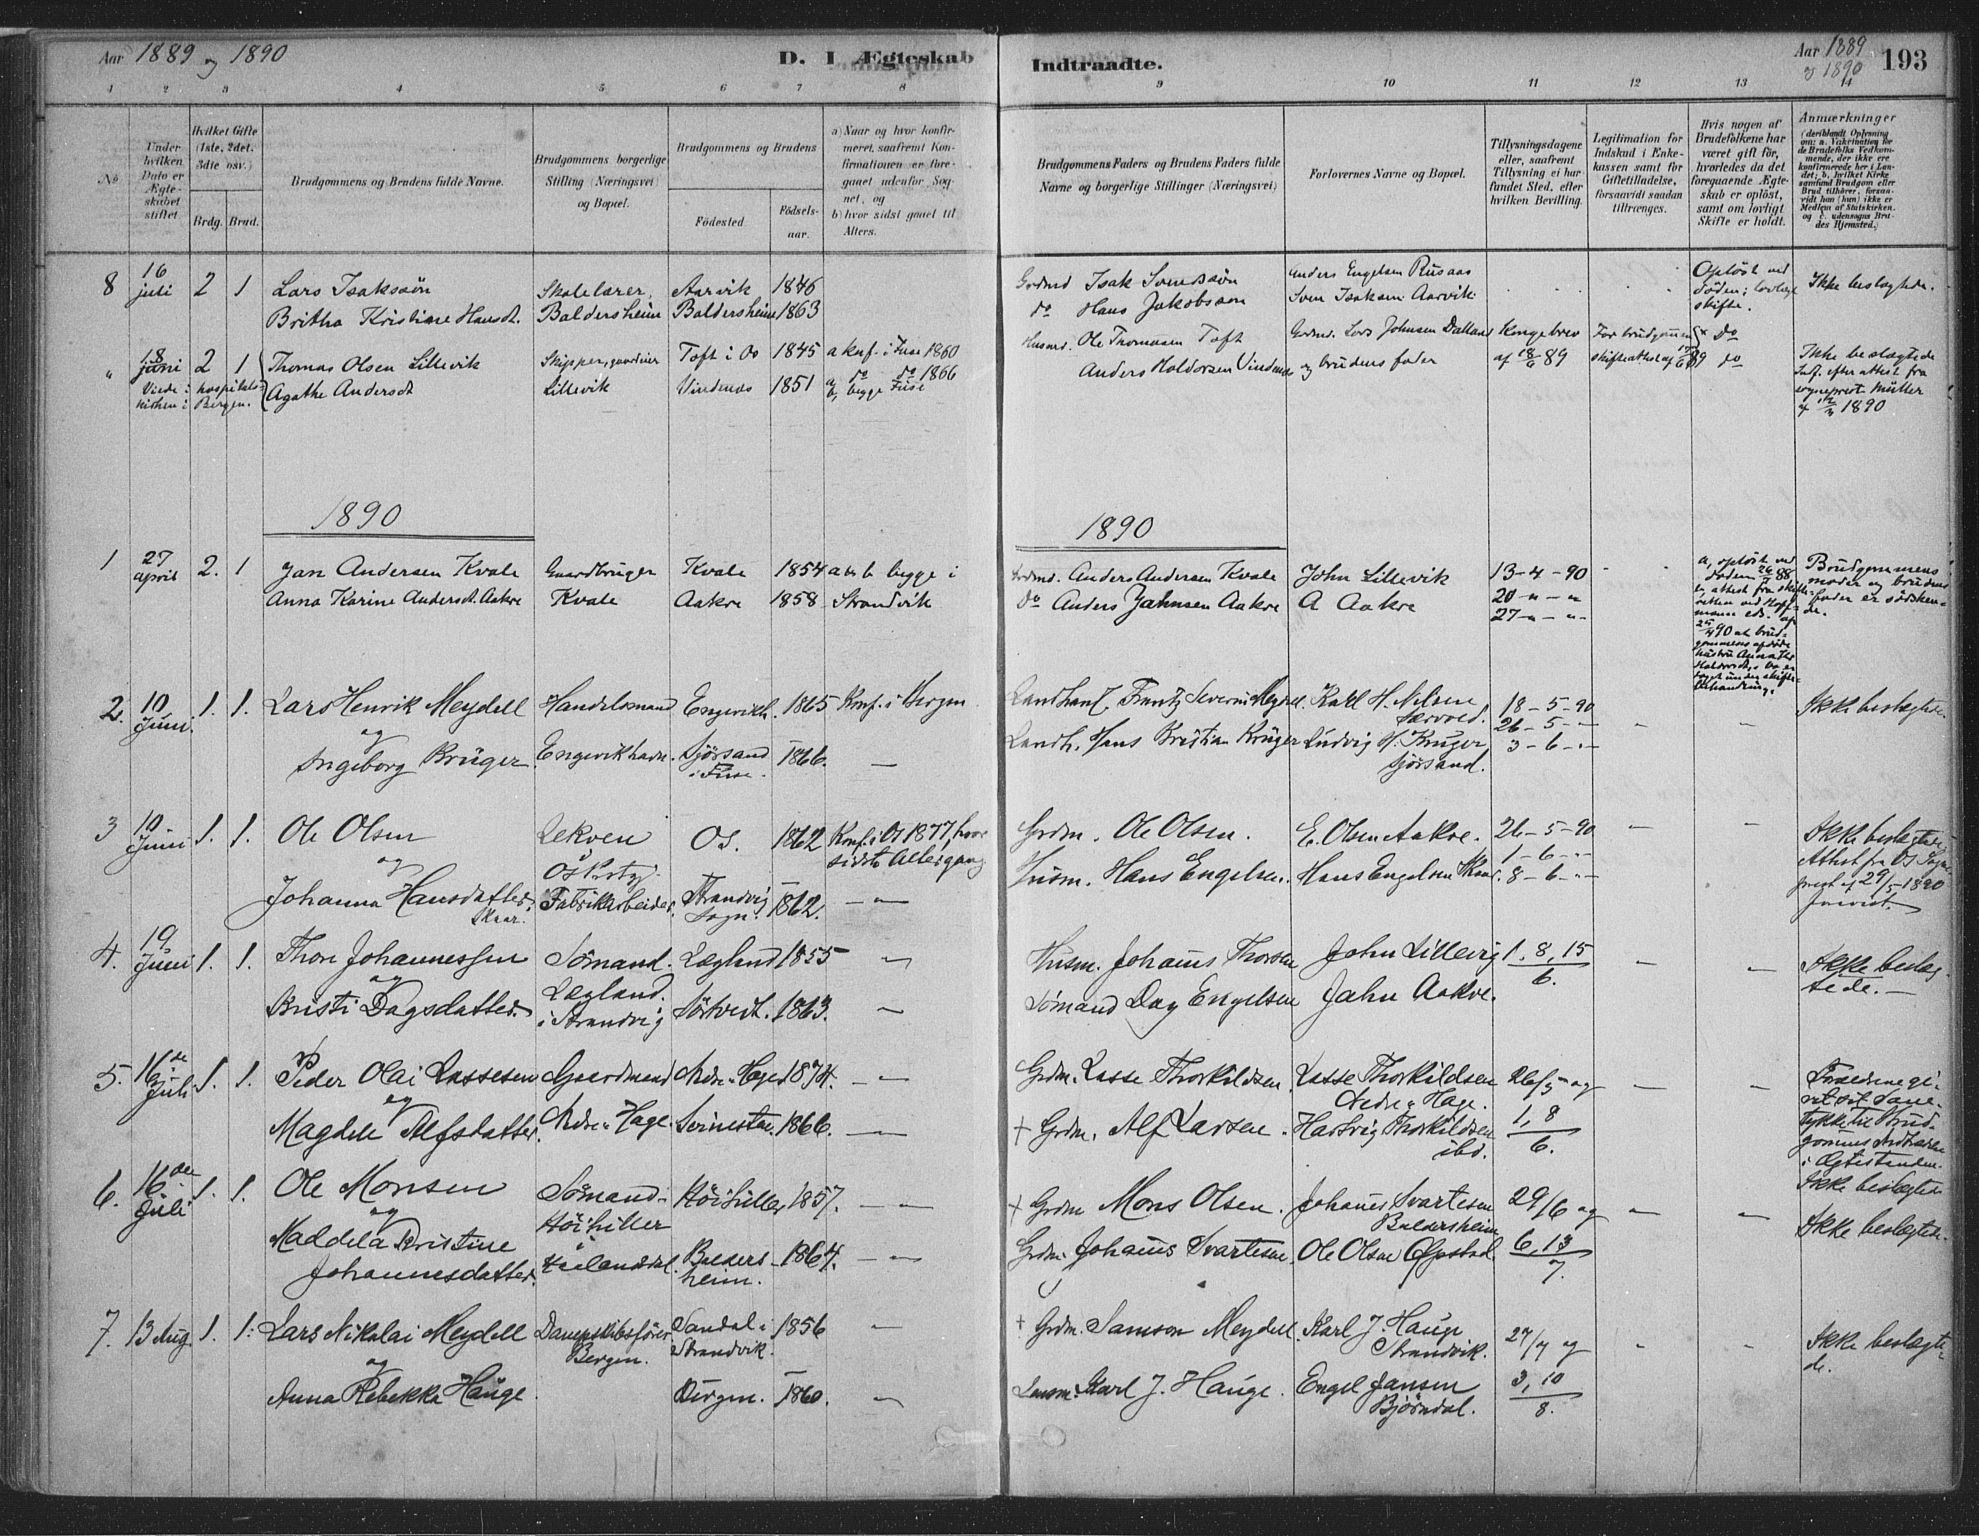 Aar 1889 og 1890
D. I Ægteskab
Indtraadte.
Aar 1889
og 1890
193
1 2 3 4 5 6 7 8 9 10 11 12 13 14
No
Under hvilken Dato er Ægteskabet stiftet.
Hvilket Gifte (1ste, 2det, 3die osv.)
Brdg. Brud.
Brudgommens og Brudens fulde Navne.
Brudgommens borgerlige Stilling (Næringsvei) og Bopæl.
Brudgommens og Brudens
Fødested
Fødsels-aar.
a) Naar og hvor konfirmeret, saafremt Konfirmationen er foregaaet udenfor Sognet, og
b) hvor sidst gaaet til Alters.
Brudgommens Faders og Brudens Faders fulde Navne og borgerlige Stillinger (Næringsvei)
Forlovernes Navne og Bopæl.
Tillysningsdagene eller, saafremt Tillysning ei har fundet Sted, efter hvilken Bevilling.
Legitimation for Indskud i Enkekassen samt for Giftetilladelse, forsaavidt saadan tiltrænges.
Hvis nogen af Brudefolkene har været gift før, hvorledes da det foregaaende Ægteskab er opløst, samt om lovligt Skifte er holdt.
Anmærkninger
8 16 juli 2 1 Lars Isaksøn Skolelærer Aarvik 1846
Britha Kristine Hansdt. Baldersheim Baldersheim 1863
Grdmd Isak Svendsøn Anders Engelsen Rusaas
do Hans Jakobsøn Sven Isaksen Aarvik
Opløst ved Døden; lovlig skifte.
Ikke beslægtede.
" 18 juni 2 1 Thomas Olsen Lillevik Skipper, gaardeier Toft i Os 1845 a konf. i Fuse 1860
Viede i hospitals-kirken i Bergen. Agathe Andersdt Lillevik Vindenes 1851 a do do 1866
b, begge Fuse
Husmd. Ole Thomasen Toft Grdmd. Lars Johnsen Dalland Kongebrev For brudgommen do
Anders Haldorsen Vindenes og brudens fader af 18/6 89 skifteattest af 17/6 89 do
Ikke beslægtede
Indf. efter attest fra
sogneprest Müller
1890
1890
1890
1 27 april 2. 1 Jan Andersen Kvale Gaardbruger Kvale 1854 a & b begge i
Anna Karine Andersdt. Aakre Kvale Aakre 1858 Strandvik
Grdmd. Anders Andersen Kvale John Lillevik 13-4-90
Do Anders Jahnsen Aakre A Aakre 20-"-"
27-"-"
a, opløst ved
døden 26/7 88
b, attest fra skifte-
retten
25/4 90 at brud-
gommens afdøde
hustru Anna
Haldorsdt.
behandling.
Brudgommens
moder og brudens
fader er södsken-
de.
2. 10 Juni. 1. 1. Lars Henrik Meydell Handelsmand Engevikh. 1865 Konf. i Bergen
og
Ingeborg Krüger. Engevikhavn. Sjørsand i Fuse. 1866. —
Landhanl. Frantz Severin Meydel. Karl H. Nilsen 18-5-90
Landh. Hans Kristian Krüger Ludvig H. Krüger Sjørsand. 26-5-"
3-6-"
Ikke beslægtede.
3 10 Juni 1. 1. Ole Olsen Lekven Os. 1862 Konf. i Os 1877, hvor
og Os Prstgj. sidste Altergang
Johanna Hansdatter Skaar. Fabrikarbeider. Strandvig Sogn. 1862. —"—
Grdm. Ole Olsen. E. Olsen Aakre. 26-5-90
Husm. Hans Engelsen. Hans Engelsen Skaar. 1-6-"
8-6-"
Ikke beslægtede.
Attest fra Os Sogne-
prest af 29/5-1890
forevist.
4. 19 Juni 1. 1. Thore Johannessen Sømand. Lægland 1855 "
og Lægland.
Kristi Dagsdatter. i Strandvig Sörtvedt. 1863. "
Husm. Johanes Thorsen John Lillevig 1, 8, 15
Sømand Dag Engelsen Jahn Aakre. 6.
Ikke beslæg-
tede.—
5. 16de Juli 1. 1. Peder Olai Lassesen Gaardmand Nedre Hage 1874. —"—
og
Magdele Alfsdatter. Nedre Hage. Svinestøe. 1866. —"—
Grdm. Lasse Thorkildsen. Lasse Thorkildsen 26/5 og
Nedre Hage.
+ Grdm. Alf Larsen. Hartvig Thorkildsen ibd. 1, 8
6.
Forældrene gi-
vet sit Sam-
tykke til Brud-
gommens Indtræden
i Ægtestanden.
Ikke beslægtede
6. 16de Juli 1. 1. Ole Monsen Sømand. Höihiller 1857. —"—
og Höihiller
Maddela Kristine i
Johannesdatter. Baldersheim. 1864. —"—
+ Grdm Mons Olsen. Johanes Svartesen 29/6 og
Baldersheim
Grdm. Johanes Svartesen Ole Olsen Opstad 6, 13
7.
Ikke beslægtede.
7. 13 Aug. 1. 1. Lars Nikolai Meydell Dampskibsfører Sandal i 1856 "
og Bergen. Strandvik.
Anna Rebekka Hauge Bergen. 1860. "
+ Grdm. Samson Meydell. Karl J. Hauge 27/7 og
Strandvik.
Lensm. Karl J. Hauge. Engel Jansen 3, 10
Bjørndal. 8.
Ikke beslægte-
de.